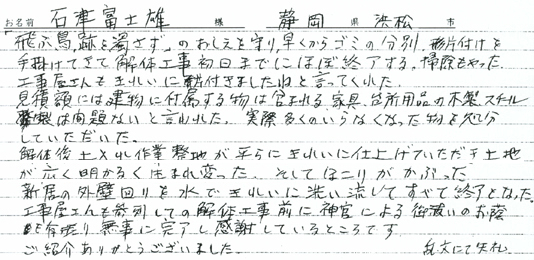 お名前 石津富士雄 様 静岡 県 浜松 市
「飛ぶ鳥跡を濁さず」のおしえを守り、早くからゴミの分別、片付けを
手掛けてきて解体工事初日までにほぼ終了する。掃除もやった。
工事屋さんもきれいに片付きましたねと言ってくれた
見積額には建物に付属する物は含まれる家具、台所用品の木製、スチール
製は問題ないと言われた。実際多くのいらなくなった物を処分
していただいた。
解体後土入れ作業整地が平らにきれいに仕上げていただき土地
が広く明かるく生まれ変った。そしてほこりがかぶった
新居の外壁回りを水できれいに洗い流してすべて終了となった。
工事屋さんも参列しての解体工事前に神官による御祓いのお蔭
を有り無事に完了し感謝しているところです
ご紹介ありがとうございました。 乱文にて失礼